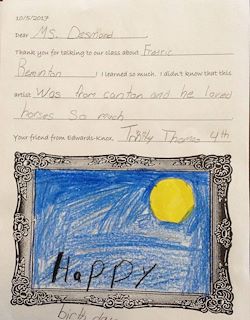 10/5/2017
Dear Ms. Desmond
Thank you for talking to our class about Fredric
Remintin ! I learned so much. I didn't know that this
artist Was from canton and he loved
horses So much
Your friend from Edwards-Knox, Thomas 4th
Happy
birth day